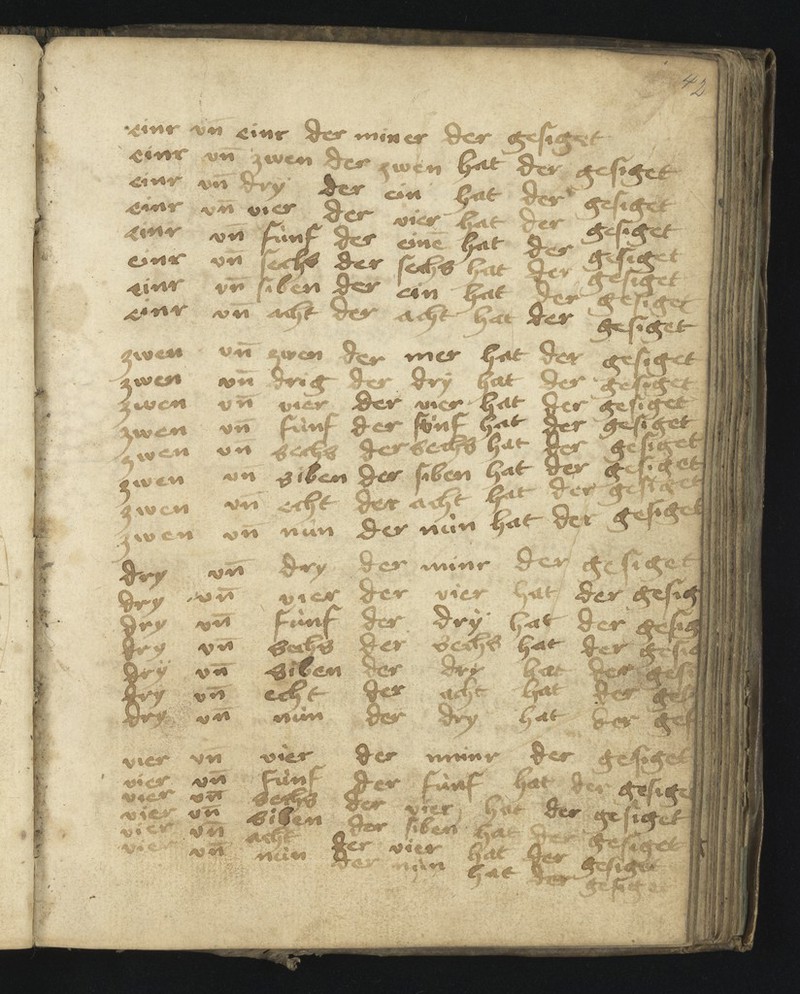 42
einr vn̄ einr der miner der gesiget
einr vn̄ zwen der zwen hat der gesiget
einr vn̄ dry der ein hat der gesiget
einr vn̄ vier der vier hat der gesiget
einr vn̄ fünf der einē hat der gesiget
einr vn̄ sechs der sechs hat der gesiget
einr vn̄ siben der ein hat der gesiget
einr vn̄ acht der acht hat der gesiget
zwen vn̄ zwen der mer hat der gesiget
zwen vn̄ drig der drÿ hat der gesiget
zwen vn̄ vier der vier hat der gesiget
zwen vn̄ fünf der fünf hat der gesiget
zwen vn̄ sechs der sechs hat der gesiget
zwen vn̄ siben der siben hat der gesiget
zwen vn̄ echt der acht hat der gesiget
zwen vn̄ nün der nün hat der gesiget
dry vn̄ dry der minr der gesiget
dry vn̄ vier der vier hat der gesig
dry vn̄ fünf der drÿ hat der gesig
dry vn̄ sechs der sechs hat der gesig
drÿ vn̄ siben der dry hat der gesi
dry vn̄ echt der acht hat der ges
dry vn̄ nün der dry hat der ges
vier vn̄ vier der minr der gesiget
vier vn̄ fünf der fünf hat der gesige
vier vn̄ sechs der vier hat der gesiget
vier vn̄ siben der siben hat der gesiget
vier vn̄ acht der vier hat der gesiget
vier vn̄ nün der nün hat der gesiget